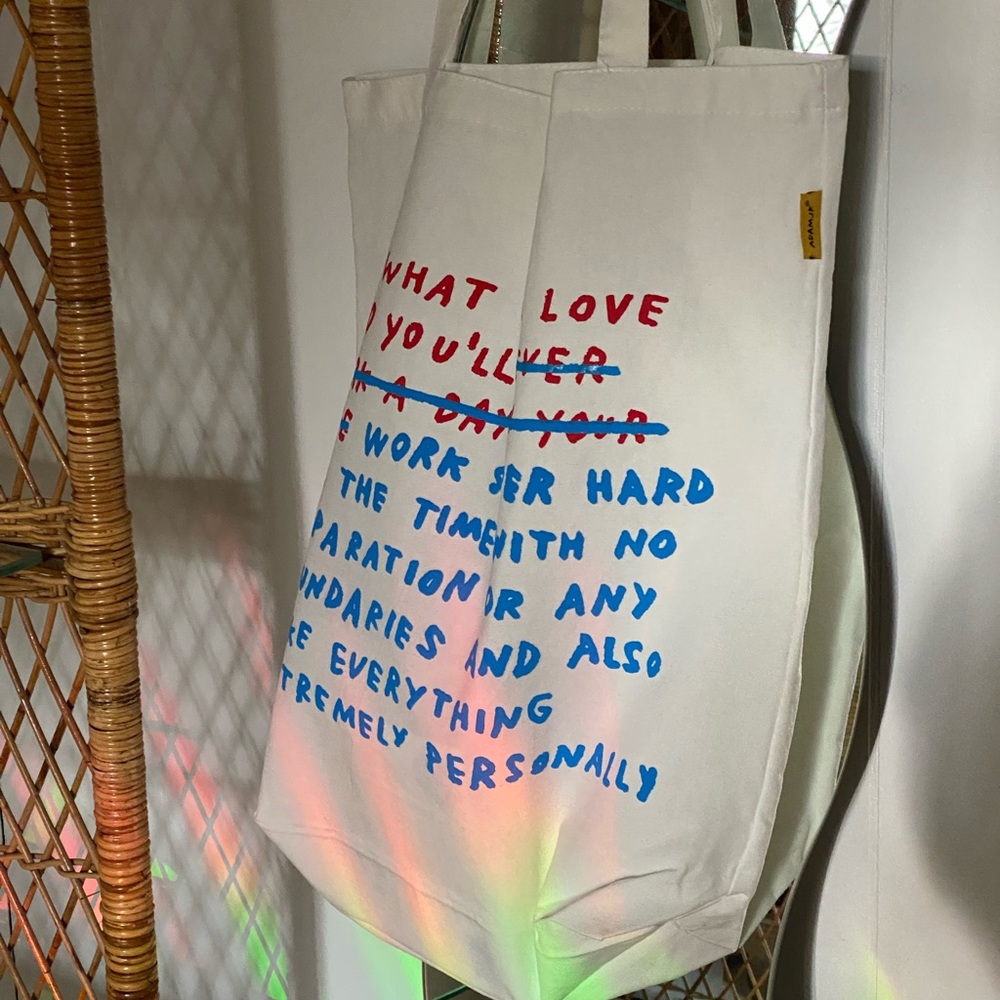 WHAT LOVE
D YOU'LL VER
K A DAY YOUR
E WORK SER HARD
THE TIME WITH NO
PARATION OR ANY
UNDARIES AND ALSO
KE EVERYTHING
TREMELY PERSONALLY
ADAMJK®